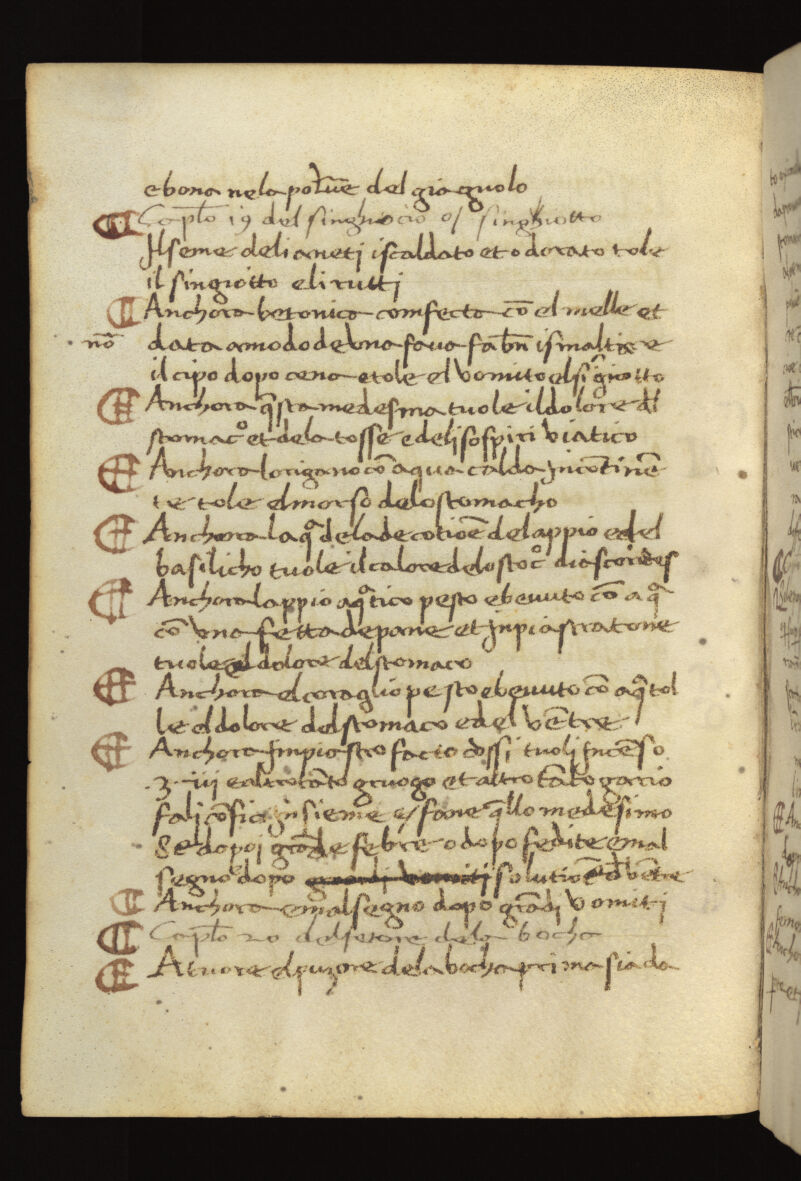 e bona nela poluē del giagnolo
¶ Caplo 19 del singhiocio o/ singhiotto
Il seme deli aneti iscaldato et odorato tole
il singiotto e li rutti
¶ Anchora betonica comfecta cō el melle et
nō data a modo de una fava fa bn ismaltire
il cipo dopo cena e tole el vomito el sīgiotto
¶ Anchora q̄sta medesma tuole il dolore dl
stomaco et dela tosse e deli sospiri viatico
¶ Anchora lorigano cō aqua calda Incōtinē
te tole el morso delo stomacho
¶ Anchora laqa dela decotioē del appio e del
basilicho tuole il calore delo stoco diascorides
¶ Anchora lappio aqatico pesto e bevuto cō aqa
cō una fetta de pane et Inpiastratone
tuole el dolore del stomaco
¶ Anchora el coraglio pesto e bevuto cō aqa tol
le el dolore del stomaco e del vētre
¶ Anchora Impiastro facto cossi tuoli Incēso
.ʒ. iiij e altrotāto gruogo et altro tāto gario
fali cōficia Insieme e/ fane q̄llo medesimo
Se dapoj grāde febre o dopo fedite e mal
segno dopo solutiōe d vētre
¶ Anchora e mal segno dopo grādi vomiti
¶ Caplo 20 del fetore dela bocha
¶ A tuore el puzore dela bocha prima sia da